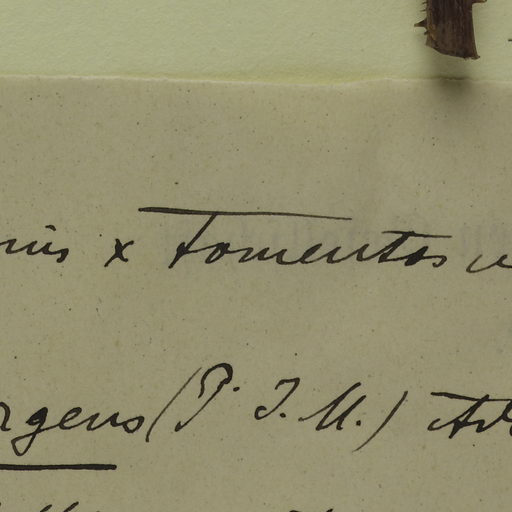 nis x tomentosu
rgens (P. J. M.)